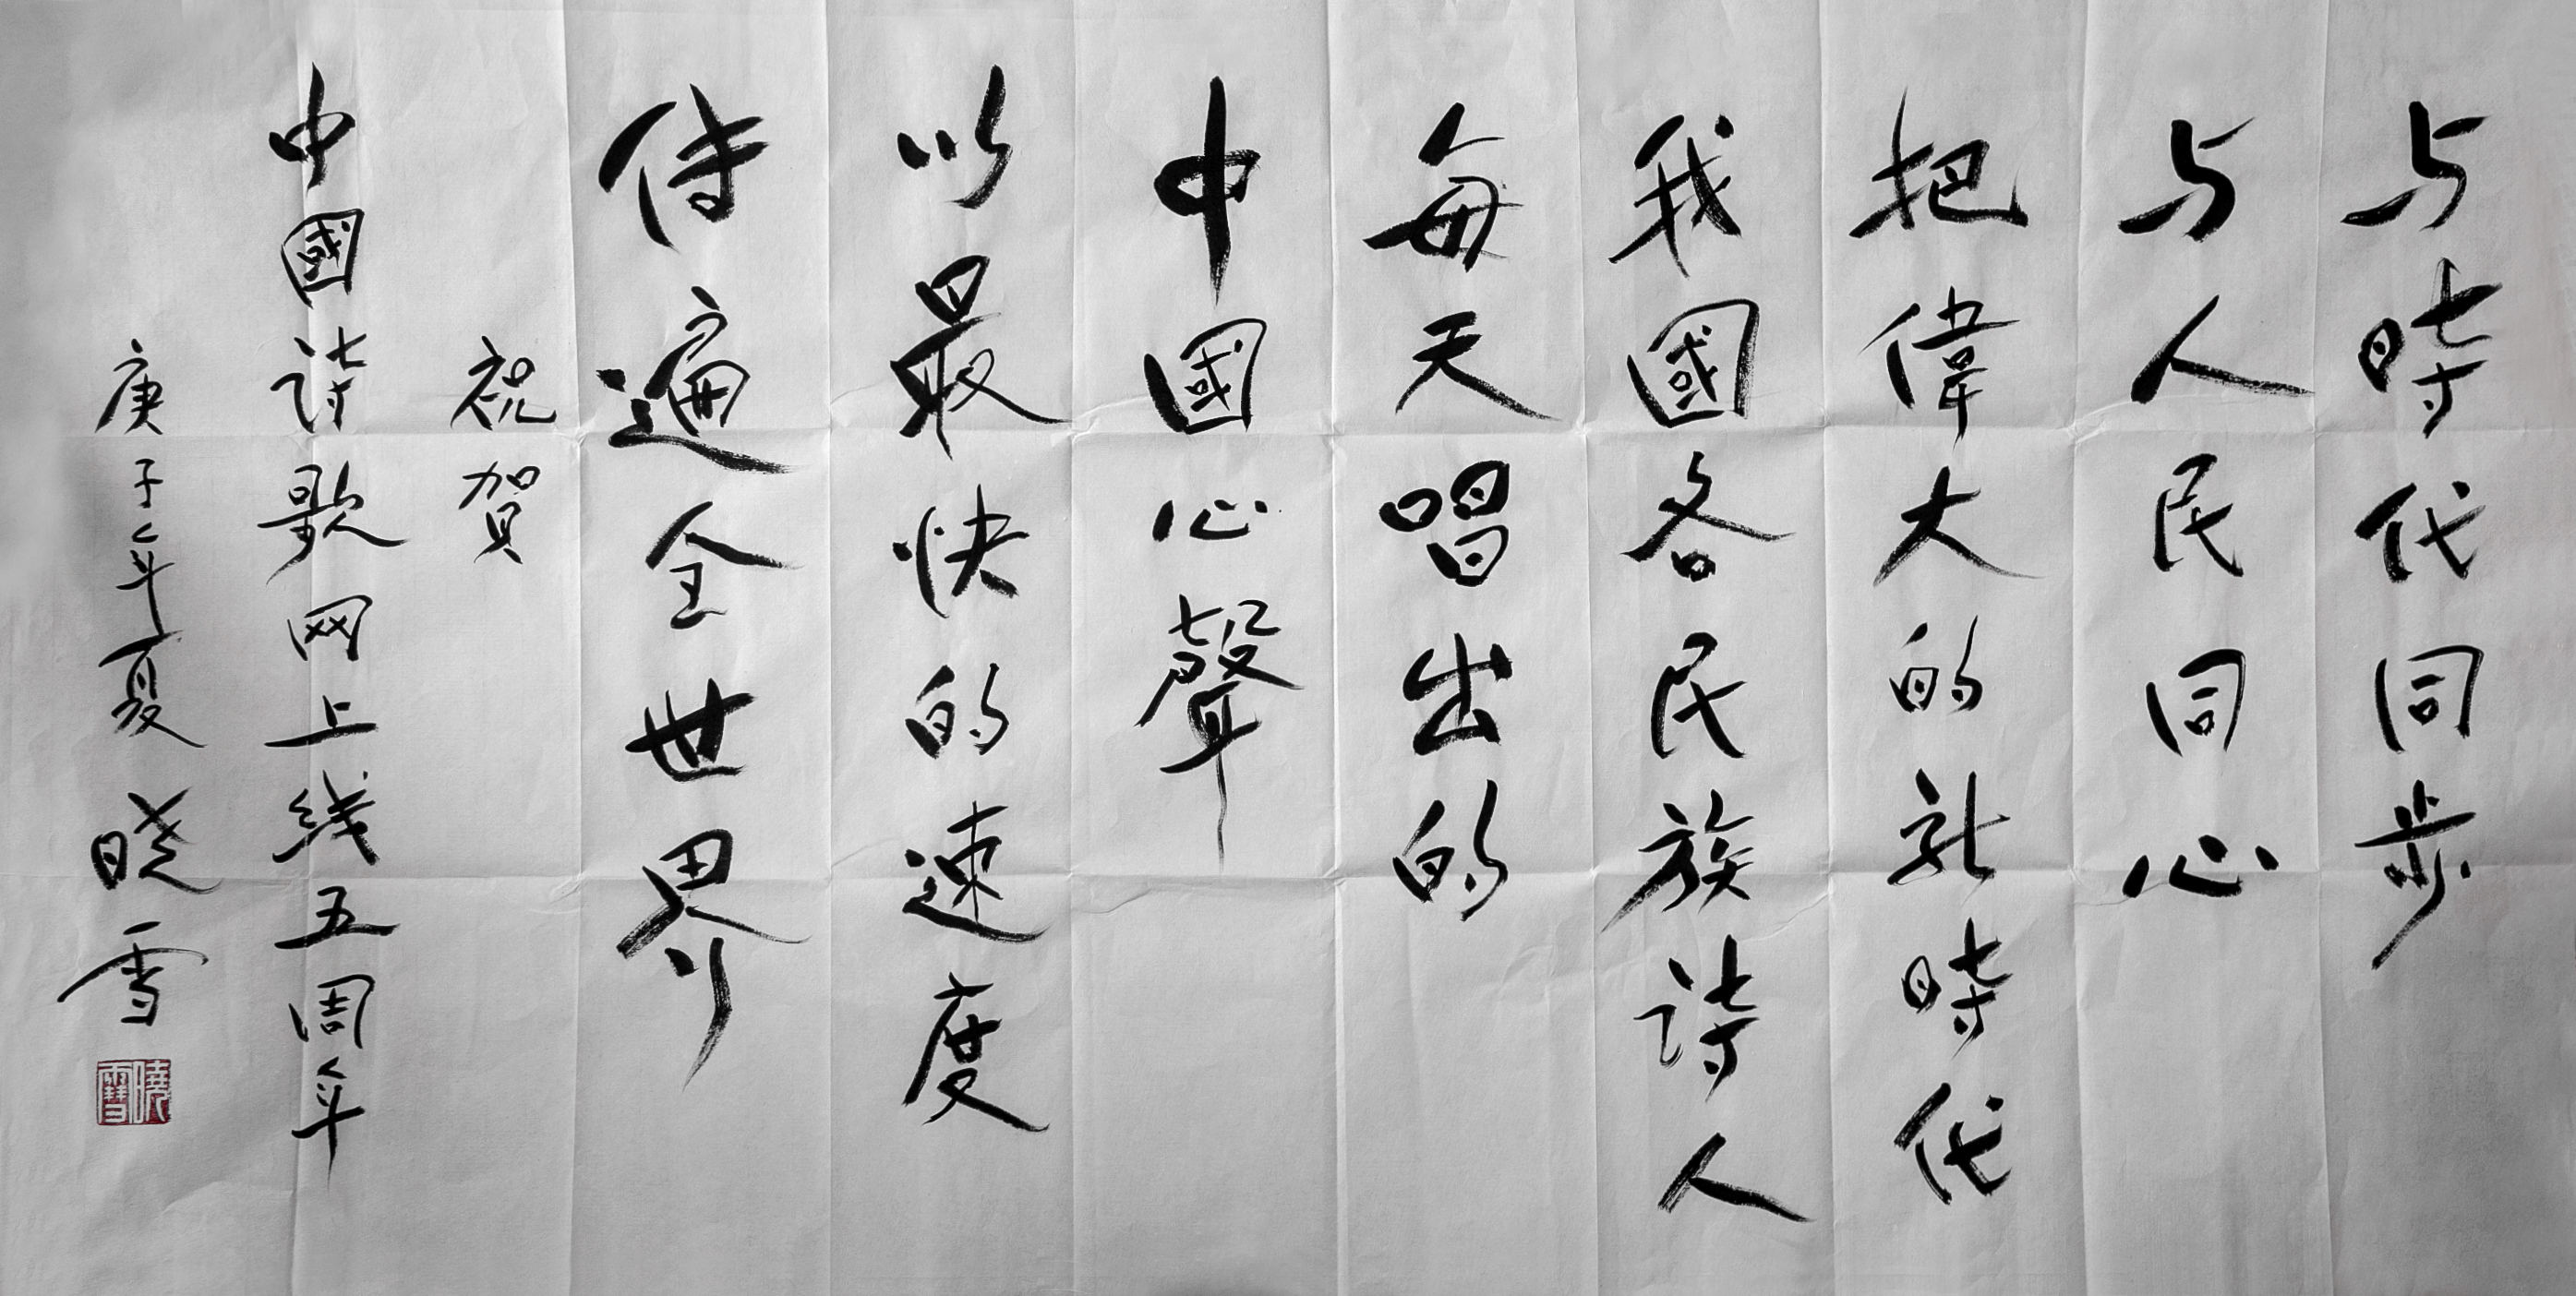 与時代同步
与人民同心
把偉大的新時代
我國各民族詩人
每天唱出的
中國心聲
以最快的速度
传遍全世界
祝賀
中國詩歌网上线五周年
庚子年夏 晓雪
曉雪